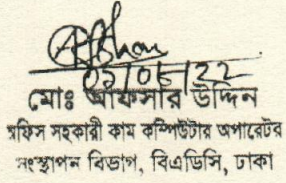 ০১/০৬/২২
মোঃ আফসার উদ্দিন
অফিস সহকারী কাম কম্পিউটার অপারেটর
সংস্থাপন বিভাগ, বিএডিসি, ঢাকা